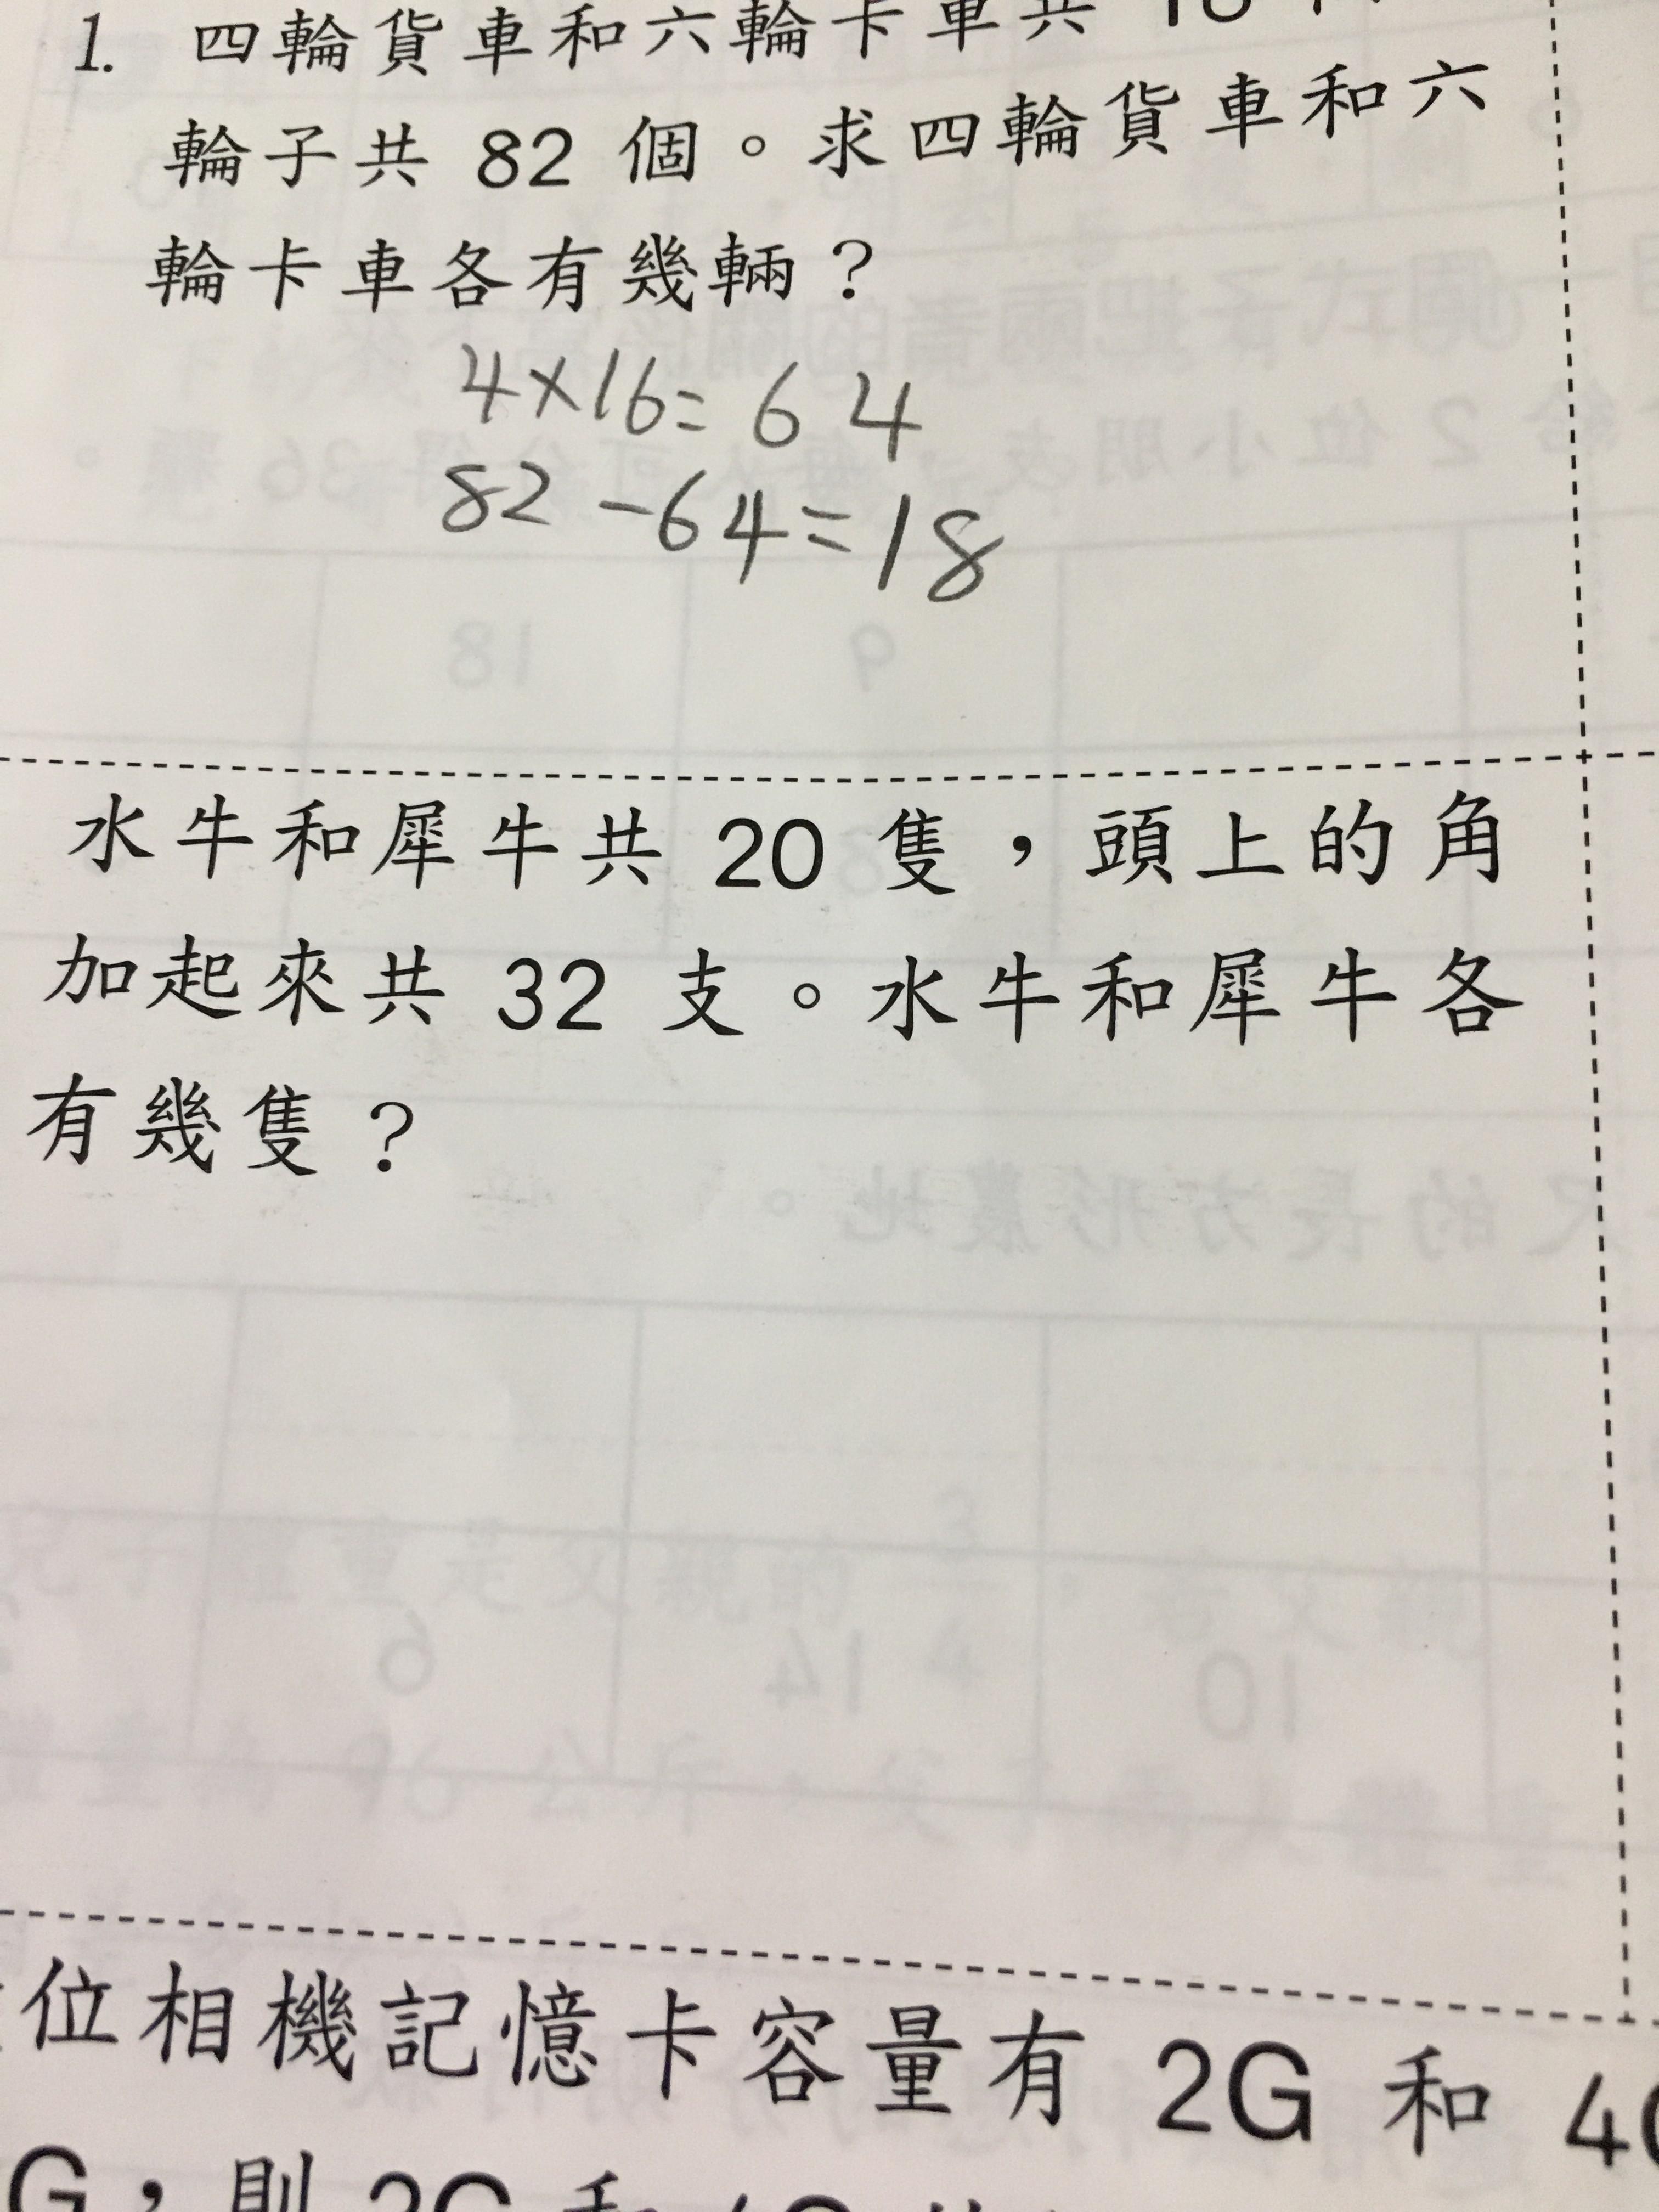 1. 四輪貨車和六輪卡車共
輪子共 82 個。求四輪貨車和六
輪卡車各有幾輛？
4×16=64
82-64=18
水牛和犀牛共 20 隻，頭上的角
加起來共 32 支。水牛和犀牛各
有幾隻？
位相機記憶卡容量有 2G 和 4
G，則 2G 和